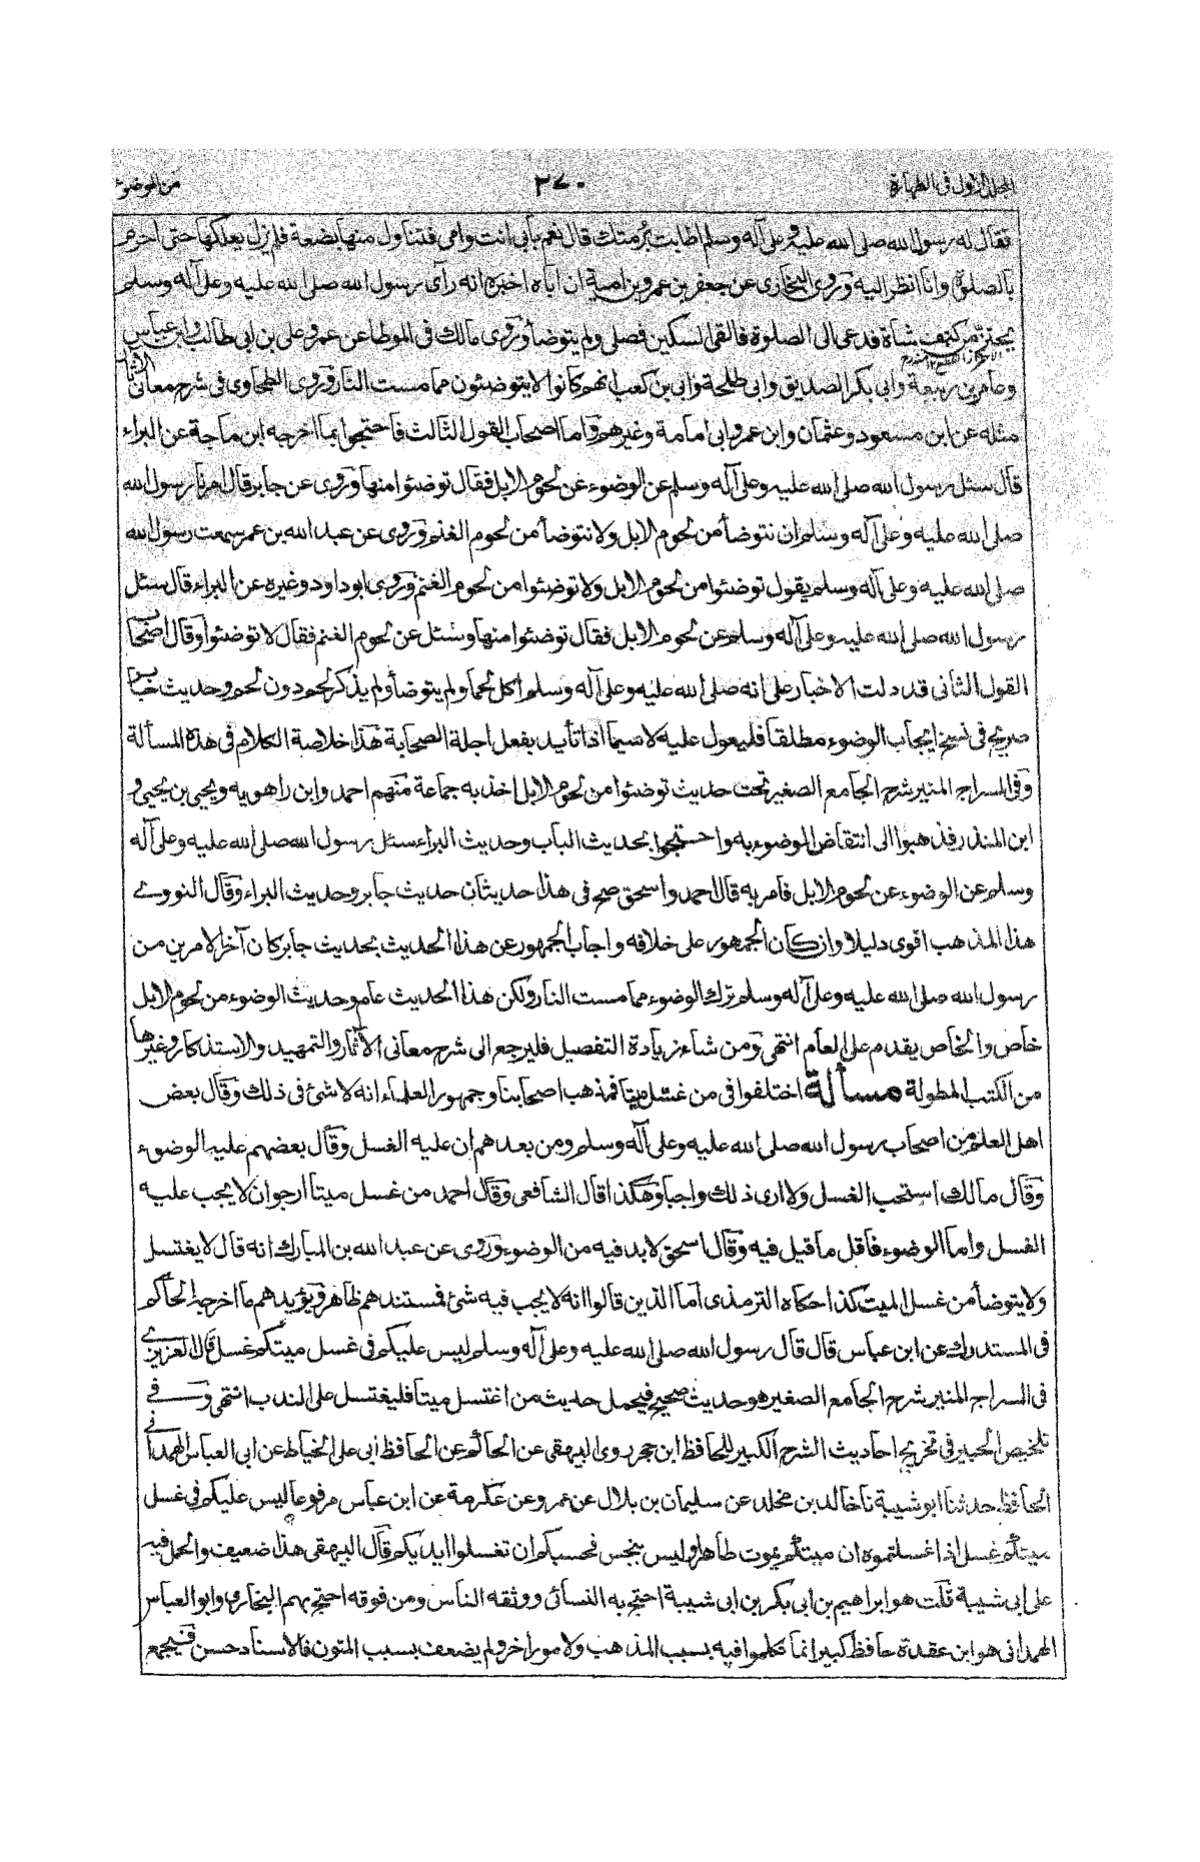 المجلد الاول في الطهارة
٣٧٠
من الوضوء
فقال له رسول الله صلى الله عليه وعلى آله وسلم اطابت برمتك قال نعم بأبي انت وامي فتناول منها بضعة فلم يزل يعلكها حتى احرم
بالصلوة وانا انظر اليه وروى البخاري عن جعفر بن عمرو بن امية ان اباه اخبره انه رأى رسول الله صلى الله عليه وعلى آله وسلم
يحتز من كتف شاة فدعى الى الصلوة فالقى السكين فصلى ولم يتوضأ وروى مالك في الموطا عن عمر وعلي بن ابي طالب وابن عباس
وعامر بن ربيعة وابي بكر الصديق وابي طلحة وابي بن كعب انهم كانوا لا يتوضئون مما مست النار وروى الطحاوي في شرح معاني الآثار
مثله عن ابن مسعود وعثمان وابن عمر وابي امامة وغيرهم واما اصحاب القول الثالث فاحتجوا بما اخرجه ابن ماجة عن البراء
قال سئل رسول الله صلى الله عليه وعلى آله وسلم عن الوضوء عن لحوم الابل فقال توضئوا منها وروى عن جابر قال امرنا رسول الله
صلى الله عليه وعلى آله وسلم ان نتوضأ من لحوم الابل ولا نتوضأ من لحوم الغنم وروى عن عبد الله بن عمر سمعت رسول الله
صلى الله عليه وعلى آله وسلم يقول توضئوا من لحوم الابل ولا توضئوا من لحوم الغنم وروى ابو داود وغيره عن البراء قال سئل
رسول الله صلى الله عليه وعلى آله وسلم عن لحوم الابل فقال توضئوا منها وسئل عن لحوم الغنم فقال لا توضئوا وقال اصحاب
القول الثاني قد دلت الاخبار على انه صلى الله عليه وعلى آله وسلم اكل لحما ولم يتوضأ ولم يذكر لحم دون لحم وحديث جابر
صريح في نسخ ايجاب الوضوء مطلقا فليعول عليه لا سيما اذا تأيد بفعل اجلة الصحابة هذا خلاصة الكلام في هذه المسألة
وفي السراج المنير شرح الجامع الصغير تحت حديث توضئوا من لحوم الابل اخذ به جماعة منهم احمد وابن راهويه ويحيى بن يحيى و
ابن المنذر فذهبوا الى انتقاض الوضوء به واحتجوا بحديث الباب وحديث البراء سئل رسول الله صلى الله عليه وعلى آله
وسلم عن الوضوء عن لحوم الابل فامر به قال احمد واسحق صح في هذا حديثان حديث جابر وحديث البراء وقال النووي
هذا المذهب اقوى دليلا وان كان الجمهور على خلافه واجاب الجمهور عن هذا الحديث بحديث جابر كان آخر الامرين من
رسول الله صلى الله عليه وعلى آله وسلم ترك الوضوء مما مست النار ولكن هذا الحديث عام وحديث الوضوء من لحوم الابل
خاص والخاص يقدم على العام انتهى ومن شاء زيادة التفصيل فليرجع الى شرح معاني الآثار والتمهيد والاستذكار وغيرها
من الكتب المطولة مسألة اختلفوا في من غسل ميتا فذهب اصحابنا وجمهور العلماء انه لا شئ في ذلك وقال بعض
اهل العلم من اصحاب رسول الله صلى الله عليه وعلى آله وسلم ومن بعدهم ان عليه الغسل وقال بعضهم عليه الوضوء
وقال مالك استحب الغسل ولا ارى ذلك واجبا وهكذا قال الشافعي وقال احمد من غسل ميتا ارجو ان لا يجب عليه
الغسل واما الوضوء فاقل ما قيل فيه وقال اسحق لا بد فيه من الوضوء وروى عن عبد الله بن المبارك انه قال لا يغتسل
ولا يتوضأ من غسل الميت كذا حكاه الترمذي اما الذين قالوا انه لا يجب فيه شئ فمستندهم ظاهر ويؤيدهم ما اخرجه الحاكم
في المستدرك عن ابن عباس قال قال رسول الله صلى الله عليه وعلى آله وسلم ليس عليكم في غسل ميتكم غسل قال العزيزي
في السراج المنير شرح الجامع الصغير هو حديث صحيح فيحمل حديث من اغتسل ميتا فليغتسل على الندب انتهى وفي
تلخيص الحبير في تخريج احاديث الشرح الكبير للحافظ ابن حجر روى البيهقي عن الحاكم عن الحافظ ابي علي الخياط عن ابي العباس الهمداني
الحافظ حدثنا ابو شيبة نا خالد بن مخلد عن سليمان بن بلال عن عمرو عن عكرمة عن ابن عباس مرفوعا ليس عليكم في غسل
ميتكم غسل اذا غسلتموه ان ميتكم يموت طاهرا وليس بنجس فحسبكم ان تغسلوا ايديكم قال البيهقي هذا ضعيف والحمل فيه
على ابي شيبة قلت هو ابراهيم بن ابي بكر بن ابي شيبة احتج به النسائي ووثقه الناس ومن فوقه احتج بهم البخاري وابو العباس
الهمداني هو ابن عقدة حافظ كبير انما تكلموا فيه بسبب المذهب ولامور اخر ولم يضعف بسبب المتون فالاسناد حسن فيجمع